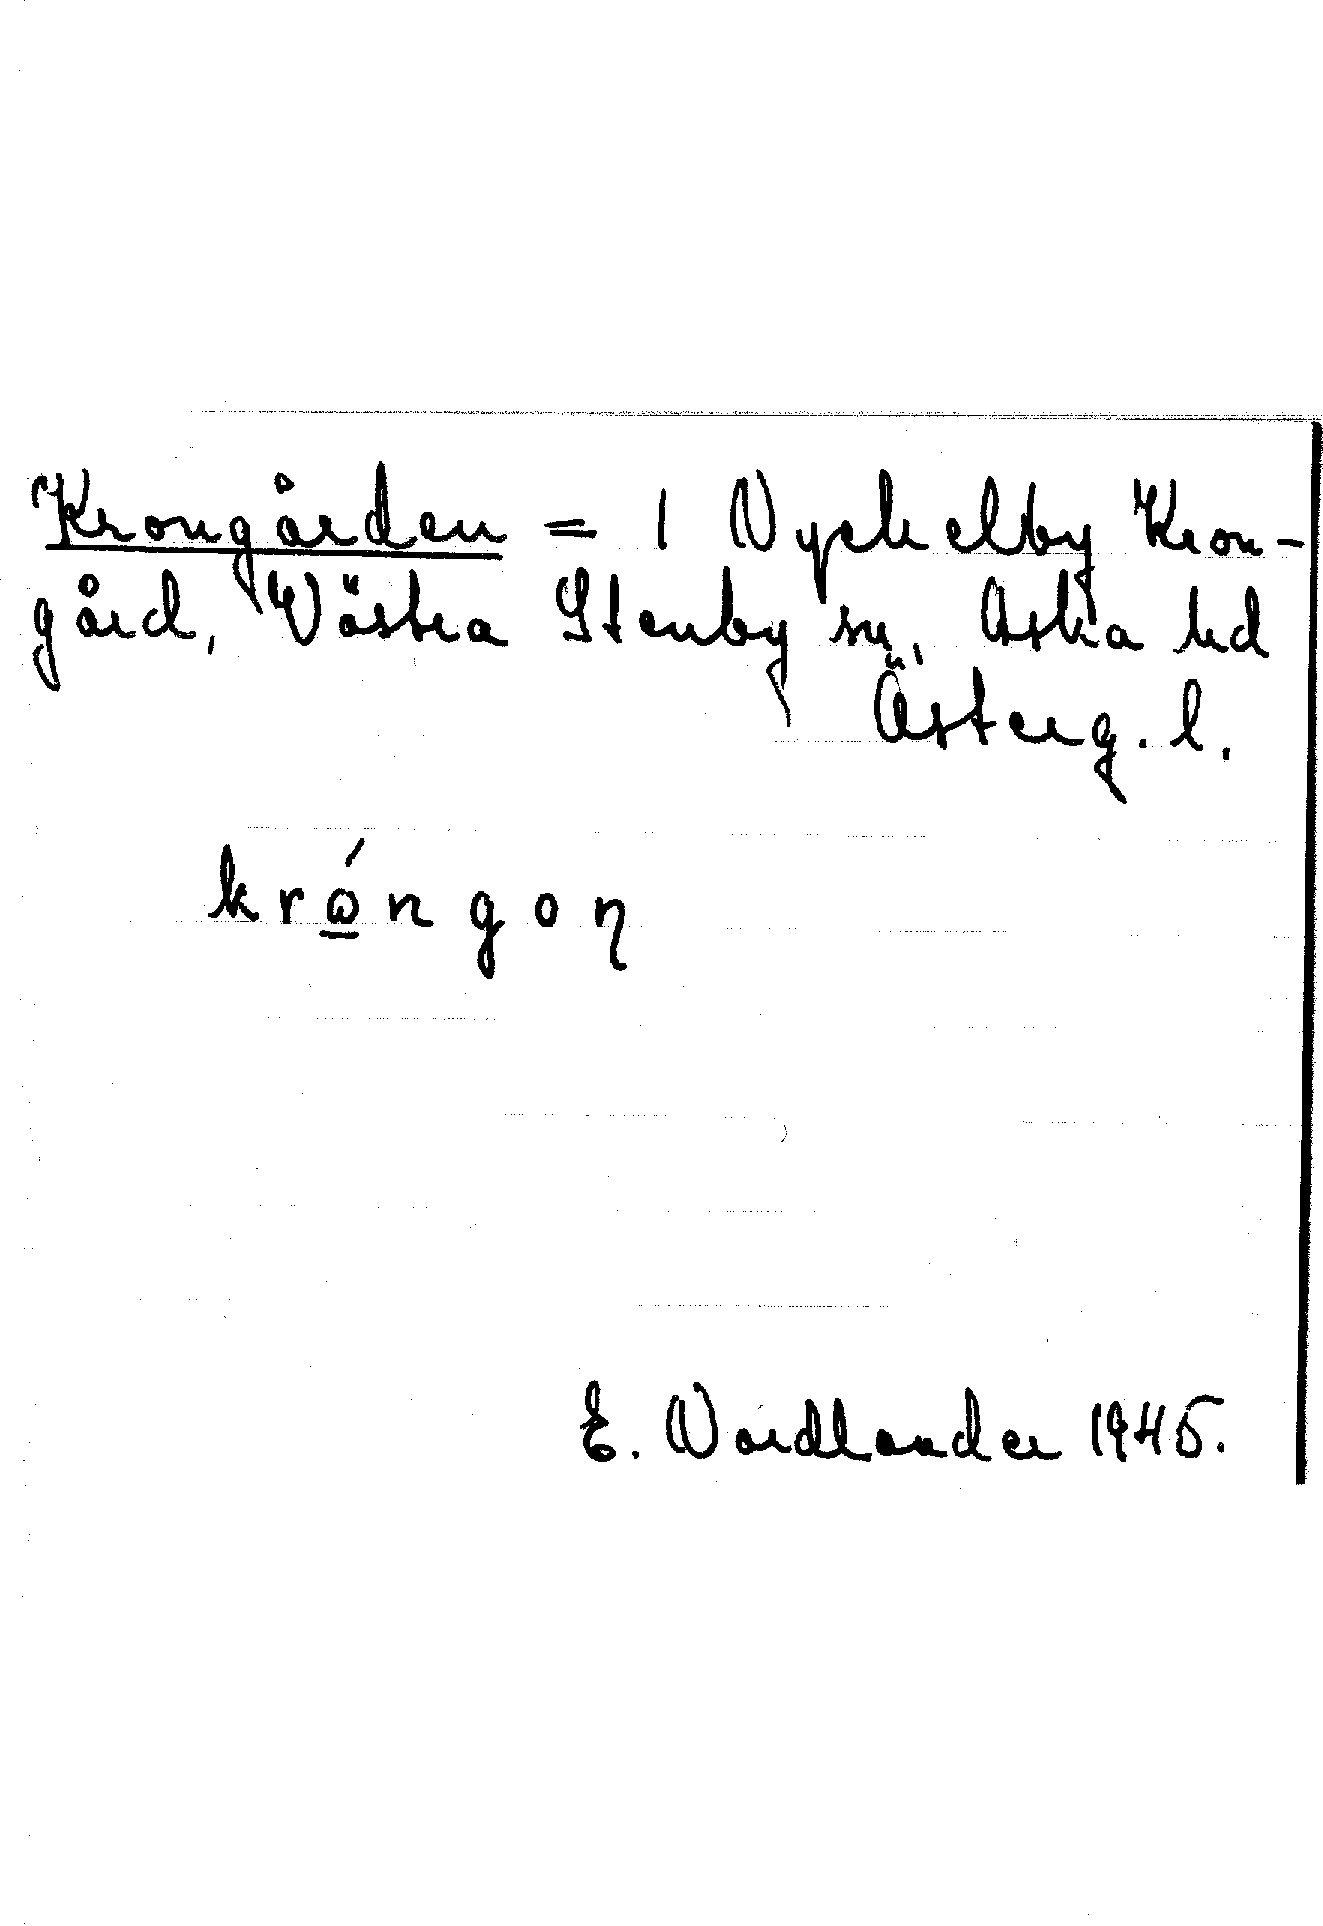 Krongården = 1 Nyckelby Kron-
gård, Västra Stenby sn, Aska hd
Österg. l.
krǫ́ngoŋ
E. Nordlander 1945.